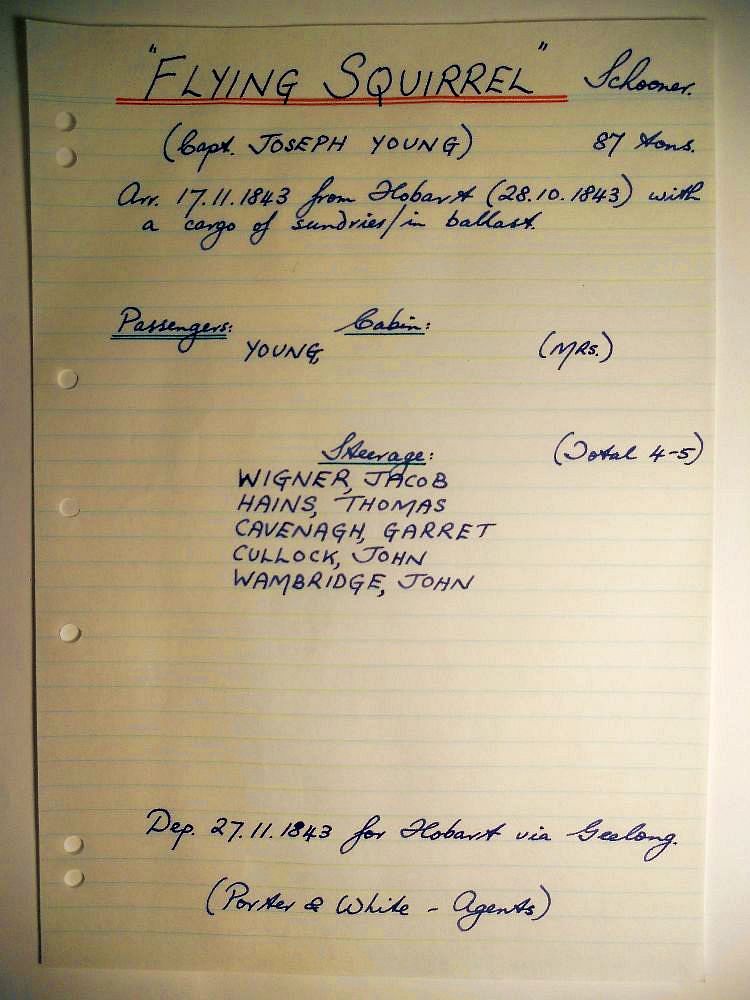 "FLYING SQUIRREL" Schooner.
(Capt. JOSEPH YOUNG) 87 tons.
Arr. 17.11.1843 from Hobart (28.10.1843) with
a cargo of sundries/in ballast.
Passengers: Cabin:
YOUNG, (MRS.)
Steerage: (Total 4-5)
WIGNER, JACOB
HAINS, THOMAS
CAVENAGH, GARRET
CULLOCK, JOHN
WAMBRIDGE, JOHN
Dep. 27.11.1843 for Hobart via Geelong.
(Porter & White - Agents)